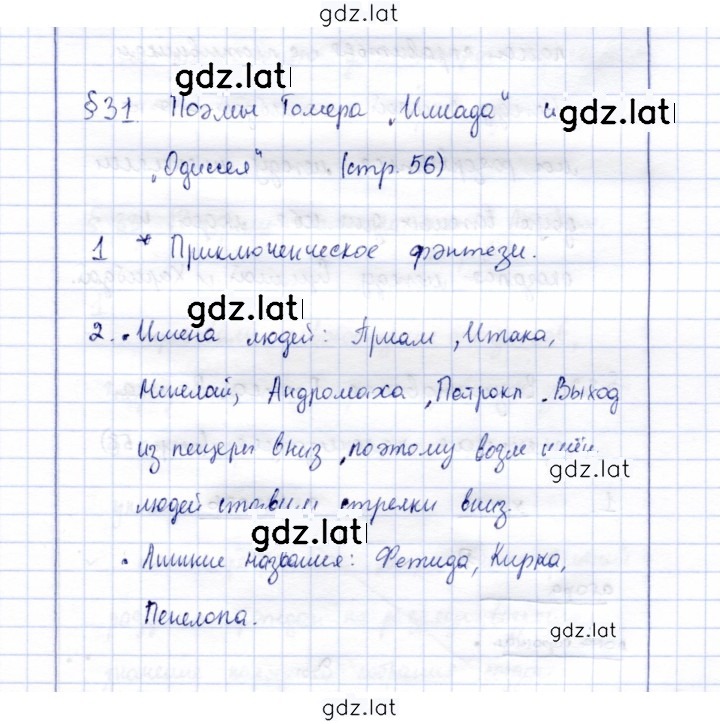 gdz.lat
gdz.lat
§31 Поэмы Гомера „Илиада" и
gdz.lat
„Одиссея" (стр. 56)
1 * Приключенческое фэнтези.
gdz.lat
2. • Имена людей: Приам, Итака,
Менелай, Андромаха, Патрокл. Выход
из пещеры вниз, поэтому возле имён
gdz.lat
людей ставим стрелки вниз.
gdz.lat
• Лишние названия: Фетида, Кирка,
Пенелопа.
gdz.lat
gdz.lat